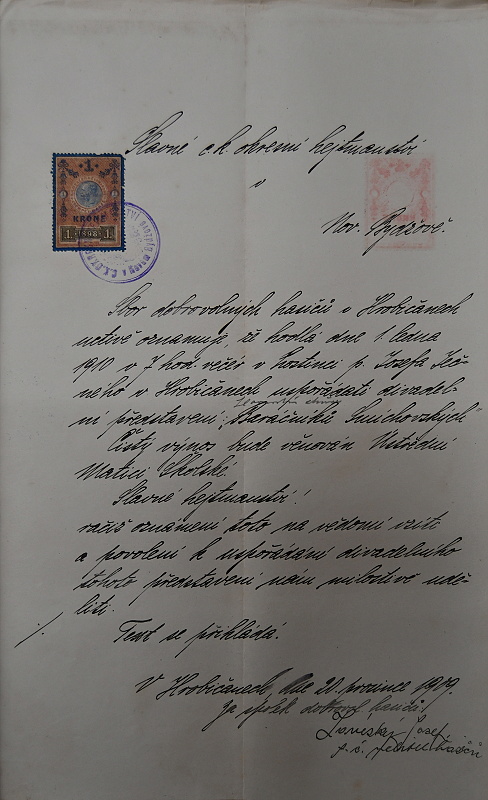 Slavné c. k. okresní hejtmanství
v
Nov. Bydžově.
1
KRONE
1 1898 1
Sbor dobrovolných hasičů v Hrobičanech
uctivě oznamuje, že hodlá dne 1. ledna
1910 v 7 hod. večer v hostinci p. Josefa
ného v Hrobičanech uspořádati divadel-
ní představení: „Baráčníků Smíchovských"
Čistý výnos bude věnován Ústřední
Matici Školské.
Slavné hejtmanství!
račiž oznámení toto na vědomí vzíti
a povolení k uspořádání divadelního
tohoto představení nám milostivě udě-
liti.
./. Text se přikládá.
V Hrobičanech, dne 20. prosince 1909.
Za spolek dobrovol. hasičů:
Josef